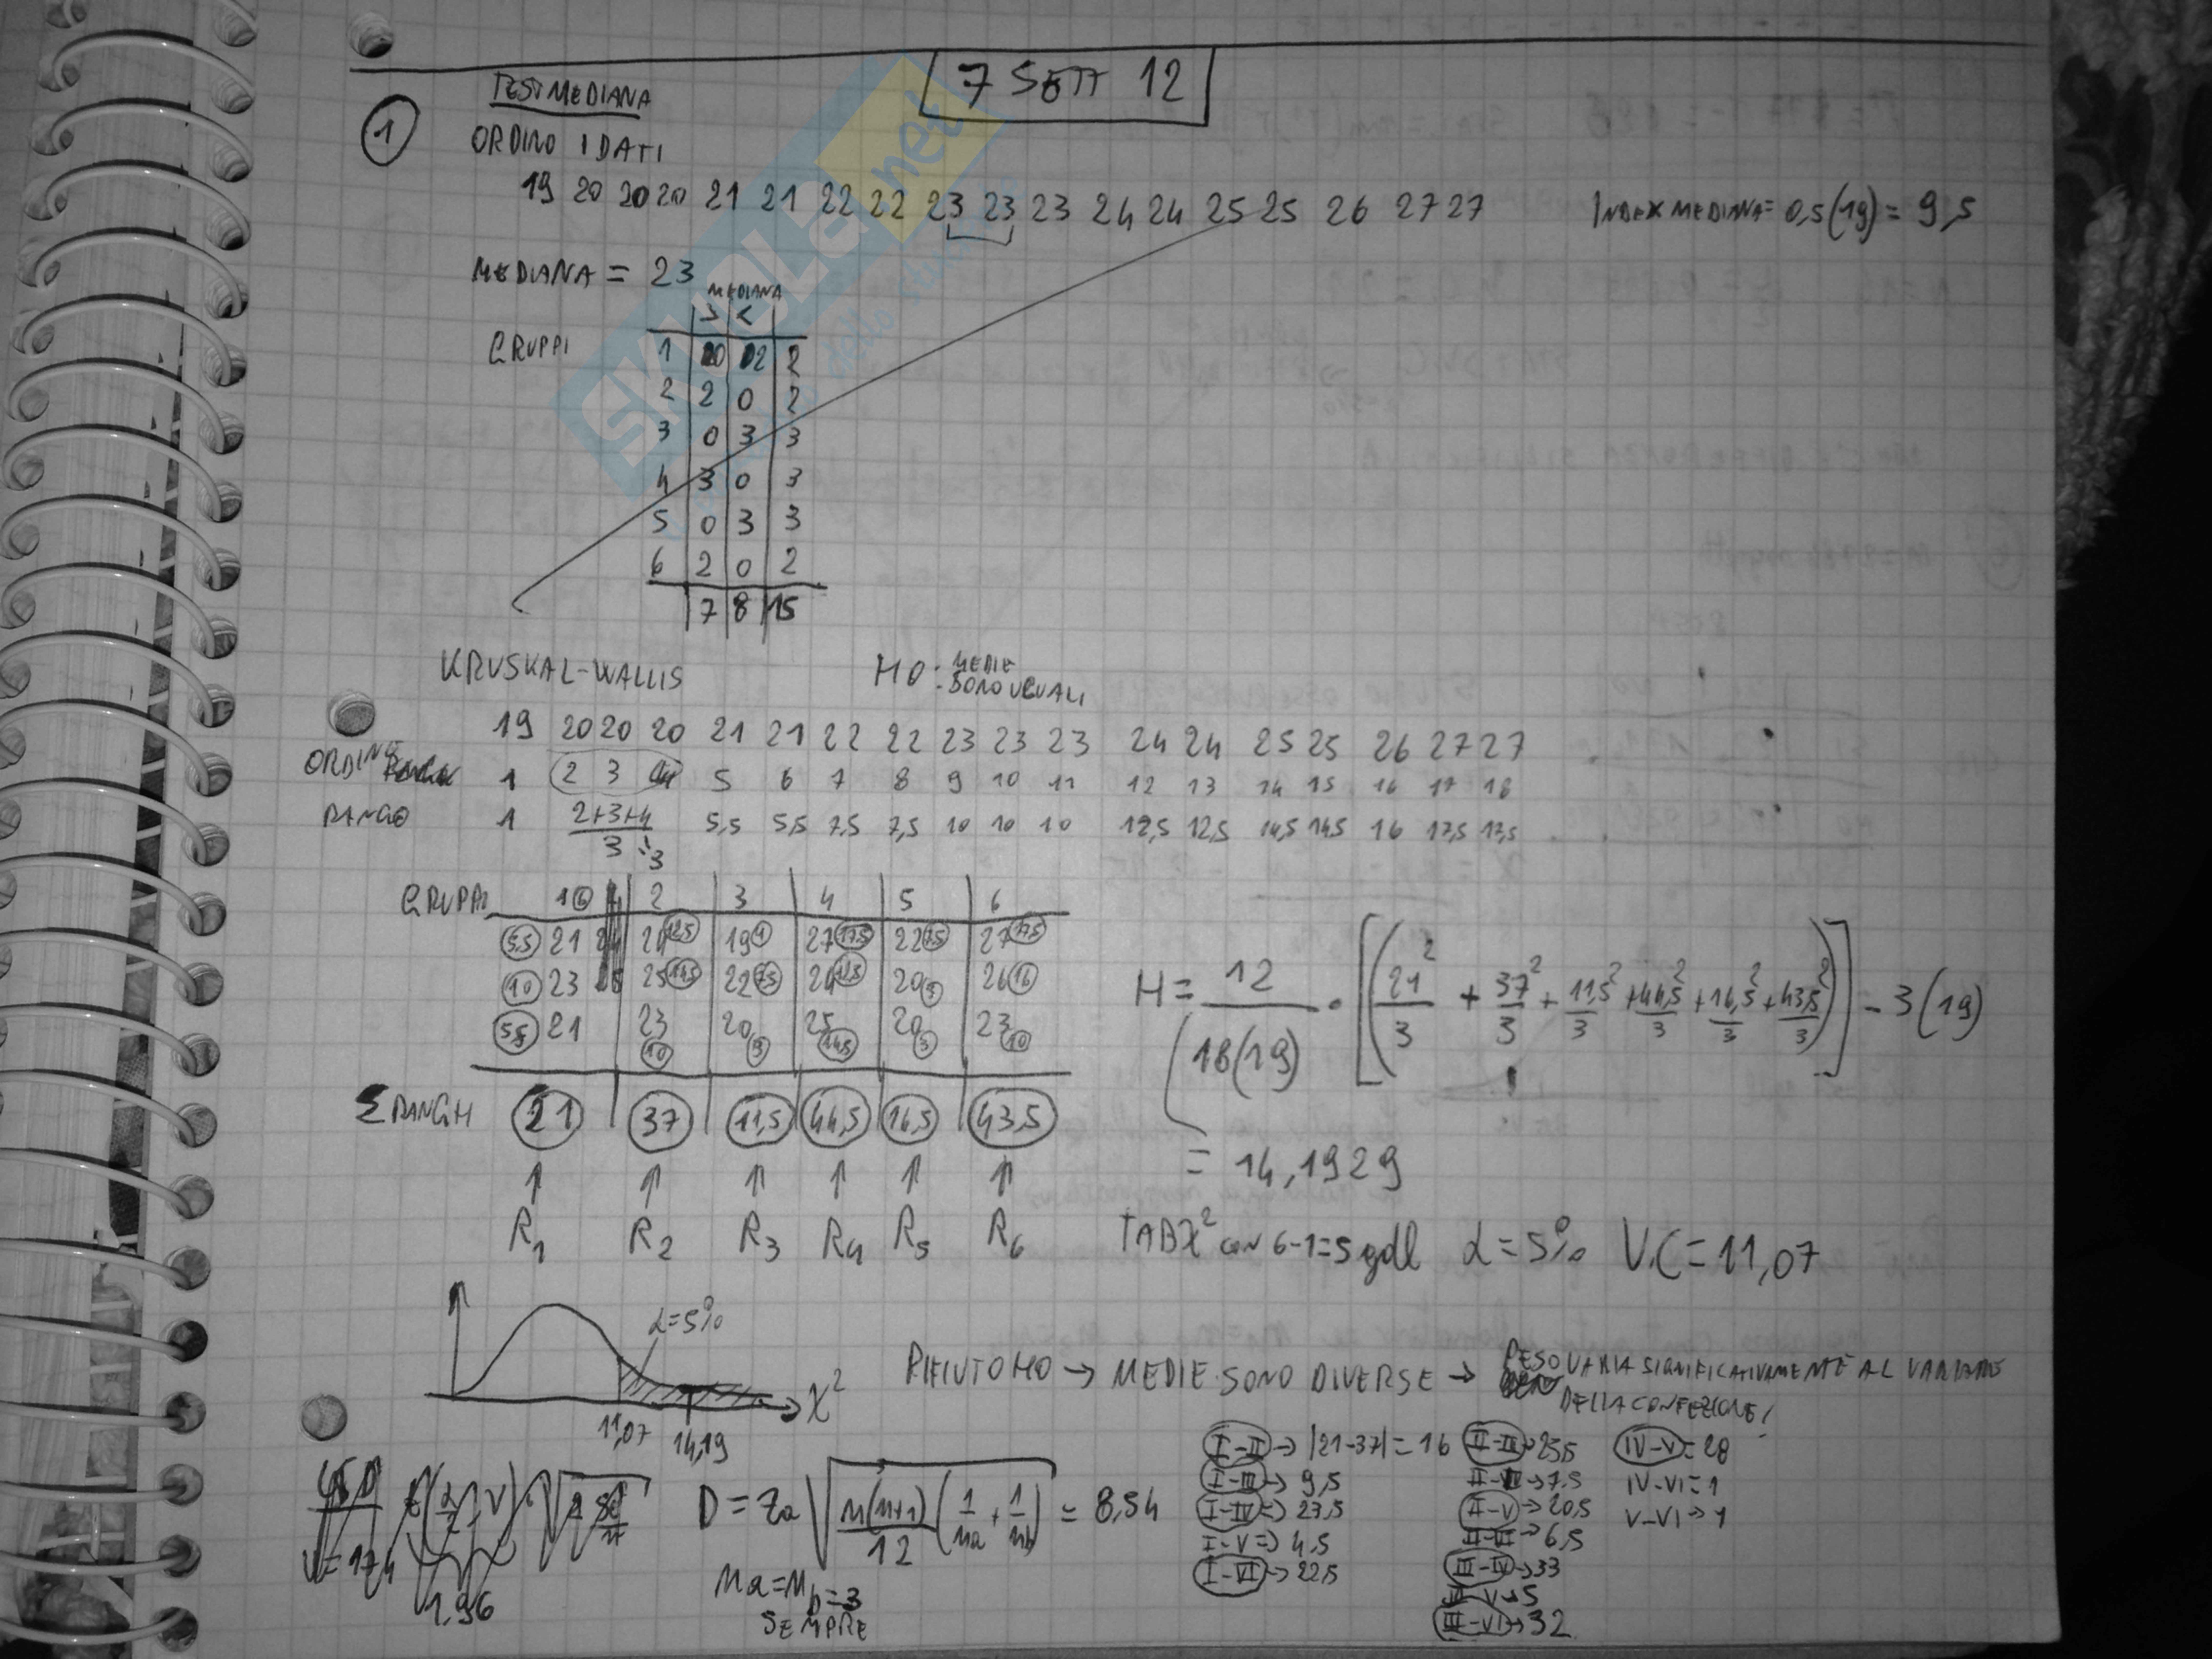 7 SETT 12
1 TEST MEDIANA
ORDINO I DATI
19 20 20 20 21 21 22 22 23 23 23 24 24 25 25 26 27 27 INDEX MEDIANA = 0,5(19) = 9,5
MEDIANA = 23
MEDIANA
> <
GRUPPI 1 0 2 2
2 2 0 2
3 0 3 3
4 3 0 3
5 0 3 3
6 2 0 2
7 8 15
KRUSKAL-WALLIS H0: MEDIE SONO UGUALI
19 20 20 20 21 21 22 22 23 23 23 24 24 25 25 26 27 27
ORDINE 1 2 3 4 5 6 7 8 9 10 11 12 13 14 15 16 17 18
RANGO 1 2+3+4/3 3 5,5 5,5 7,5 7,5 10 10 10 12,5 12,5 14,5 14,5 16 17,5 17,5
GRUPPI 1 2 3 4 5 6
5,5 21 24 12,5 19 1 27 17,5 22 7,5 27 17,5
10 23 25 14,5 22 7,5 24 12,5 20 3 26 16
5,5 21 23 10 20 3 25 14,5 20 3 23 10
Σ RANGHI 21 37 11,5 44,5 16,5 43,5
↑ ↑ ↑ ↑ ↑ ↑
R1 R2 R3 R4 R5 R6
H = 12/18(19) · [(21²/3 + 37²/3 + 11,5²/3 + 44,5²/3 + 16,5²/3 + 43,5²/3)] - 3(19)
= 14,1929
TAB χ² con 6-1=5 gdl α=5% V.C=11,07
α=5%
χ²
11,07 14,19
RIFIUTO H0 → MEDIE SONO DIVERSE → PESO VARIA SIGNIFICATIVAMENTE AL VARIARE
DELLA CONFEZIONE!
1,96
D = Zα √(n(n+1)/12 (1/na + 1/nb)) = 8,54
na=nb=3
SEMPRE
I-II → |21-37| = 16
I-III → 9,5
I-IV → 23,5
I-V → 4,5
I-VI → 22,5
II-III → 25,5
7,5
II-V → 20,5
6,5
III-IV → 33
5
III-VI → 32
IV-V = 28
IV-VI = 1
V-VI →